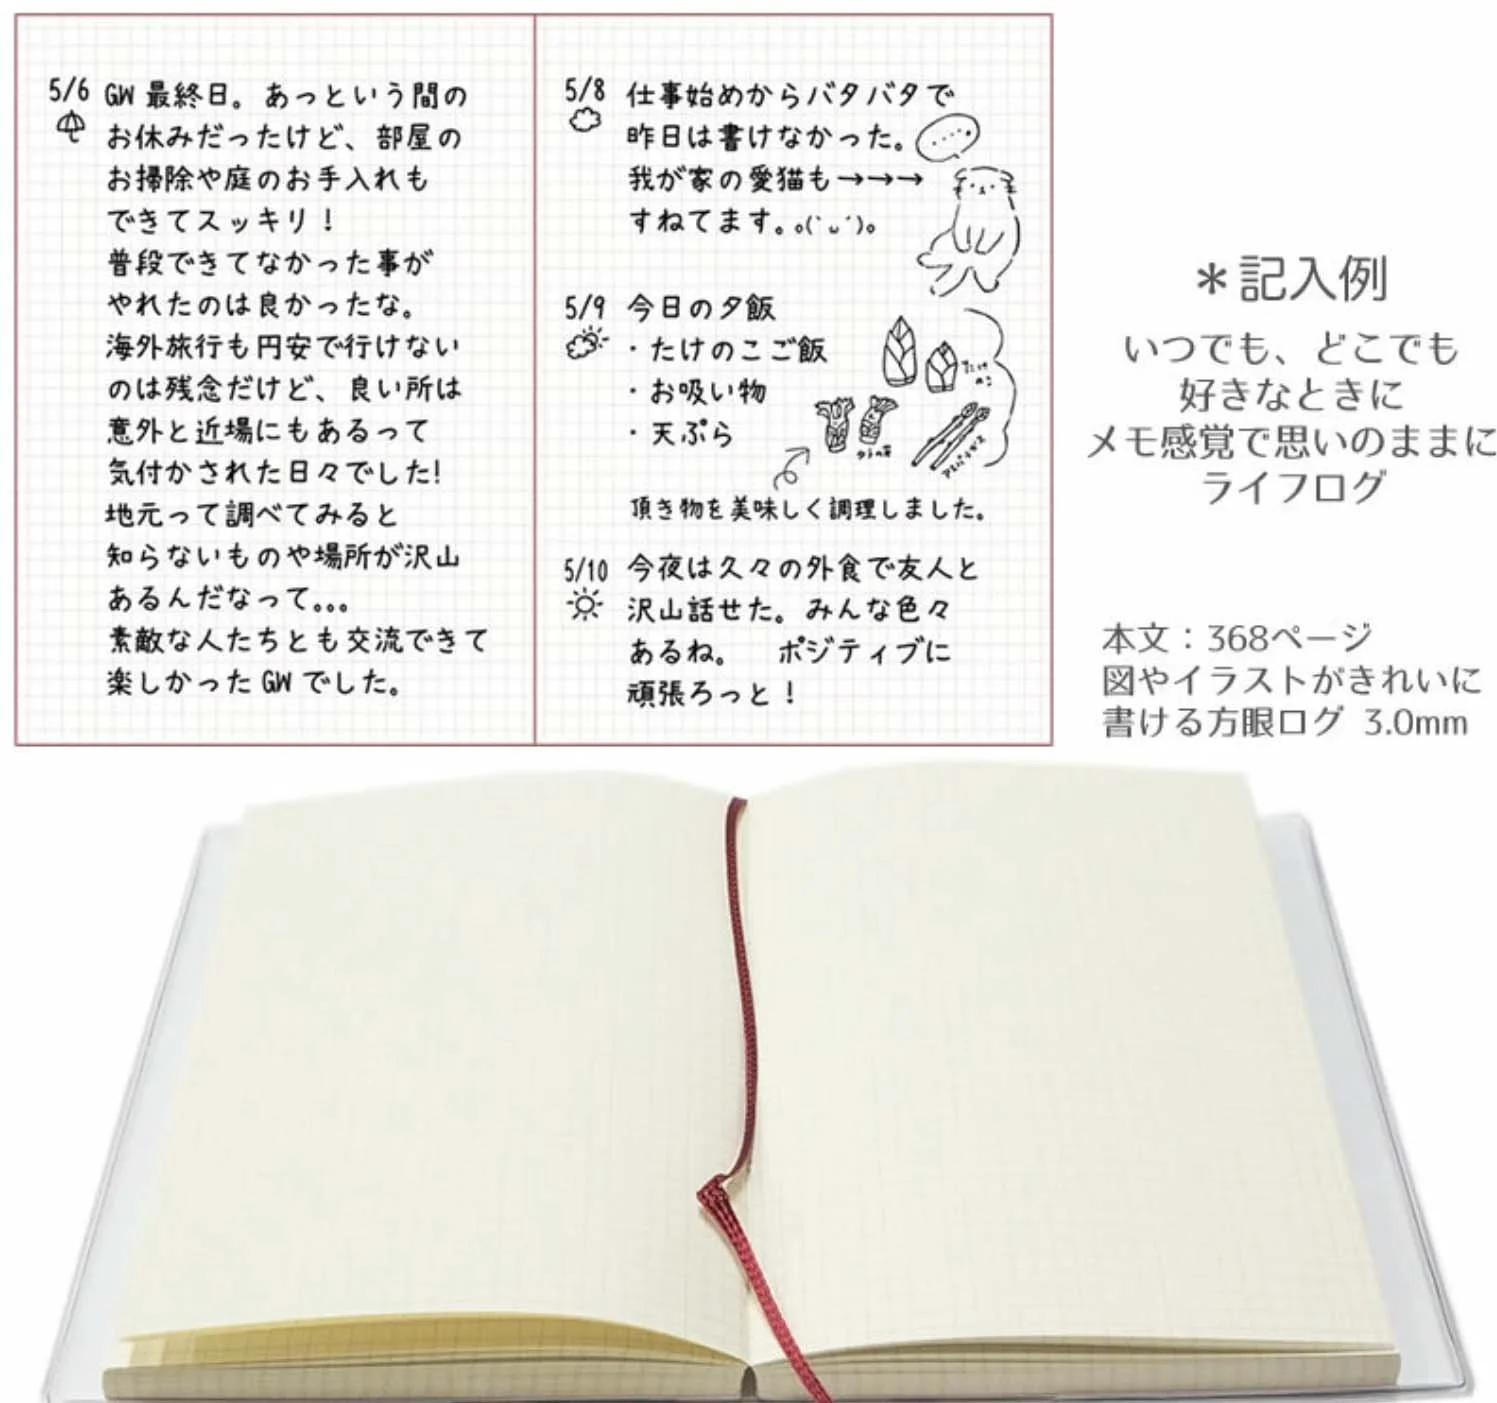 5/6 GW 最終日。あっという間の
お休みだったけど、部屋の
お掃除や庭のお手入れも
できてスッキリ！
普段できてなかった事が
やれたのは良かったな。
海外旅行も円安で行けない
のは残念だけど、良い所は
意外と近場にもあるって
気付かされた日々でした!
地元って調べてみると
知らないものや場所が沢山
あるんだなって。。。
素敵な人たちとも交流できて
楽しかった GW でした。
5/8 仕事始めからバタバタで
昨日は書けなかった。
....
我が家の愛猫も→→→
すねてます。｡(`ᴗ´)｡
5/9 今日の夕飯
・たけのこご飯
・お吸い物
・天ぷら
たけ
のこ
タラの芽
アスパラガス
頂き物を美味しく調理しました。
5/10 今夜は久々の外食で友人と
沢山話せた。みんな色々
あるね。　ポジティブに
頑張ろっと！
＊記入例
いつでも、どこでも
好きなときに
メモ感覚で思いのままに
ライフログ
本文：368ページ
図やイラストがきれいに
書ける方眼ログ 3.0mm